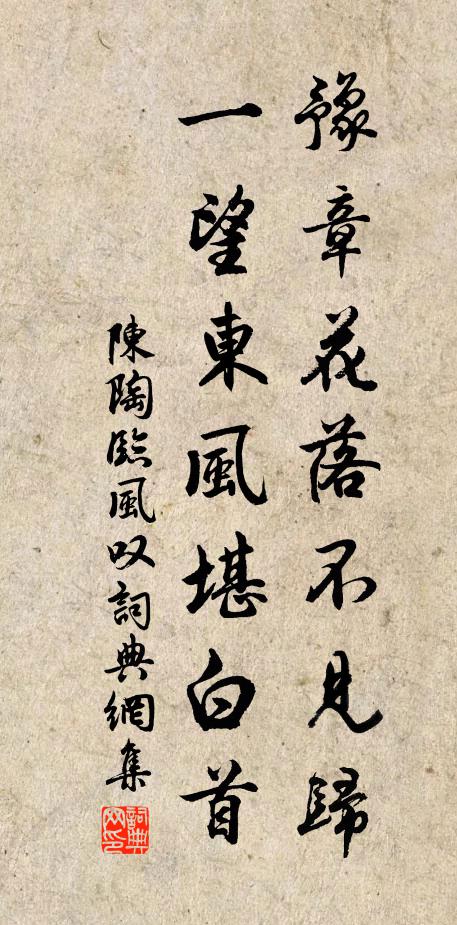 豫章花落不見歸
一望東風堪白首
陳陶臨風叹詞典網集
詞典網印